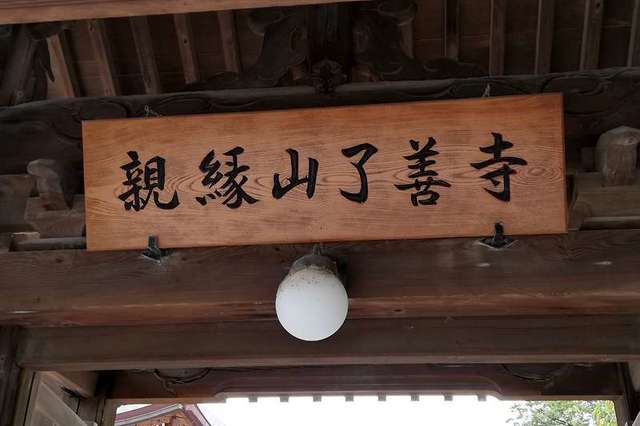 親縁山了善寺